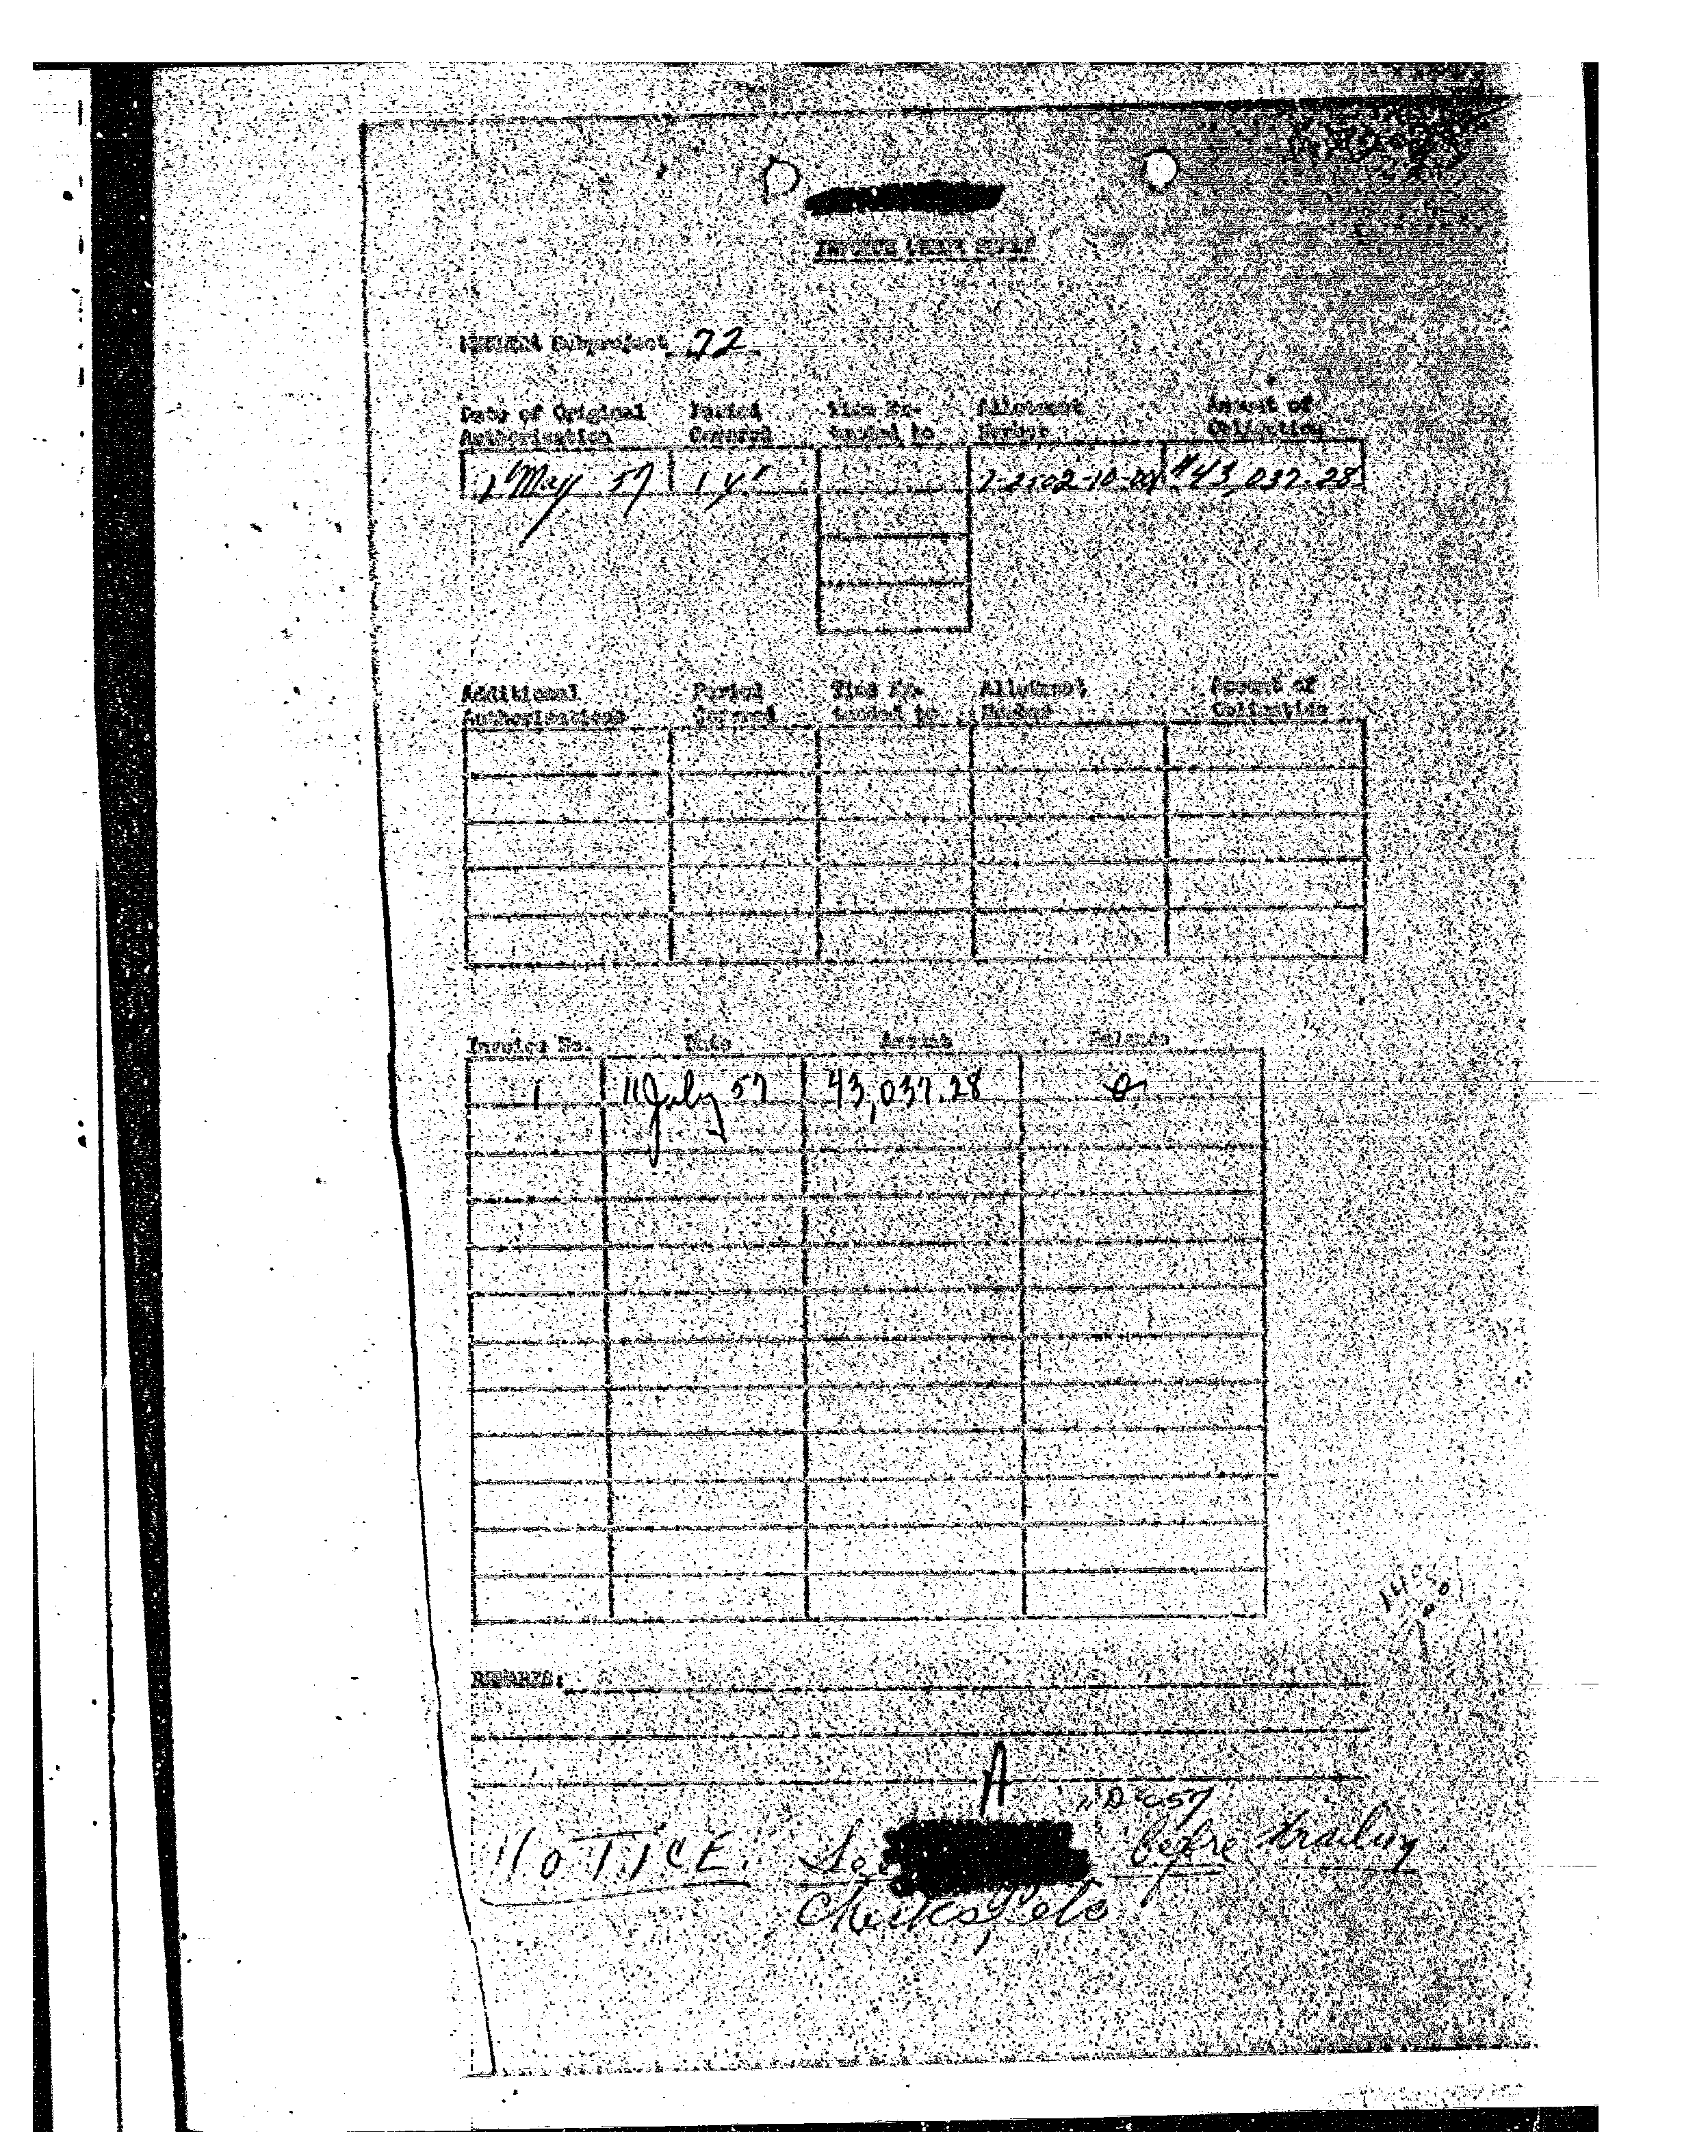 INVOICE CHECK SHEET
MKULTRA Subproject 72
Date of Original Authorization Period Covered Time Extended to Allotment Number Amount of Obligation
1 May 57 1 yr $43,037.28
Additional Authorizations Period Covered Time Ex-tended to Allotment Number Amount of Obligation
Invoice No. Date Amount Balance
1 11 July 57 43,037.28 0
REMARKS:
A
NOTICE. See before
Checks, etc